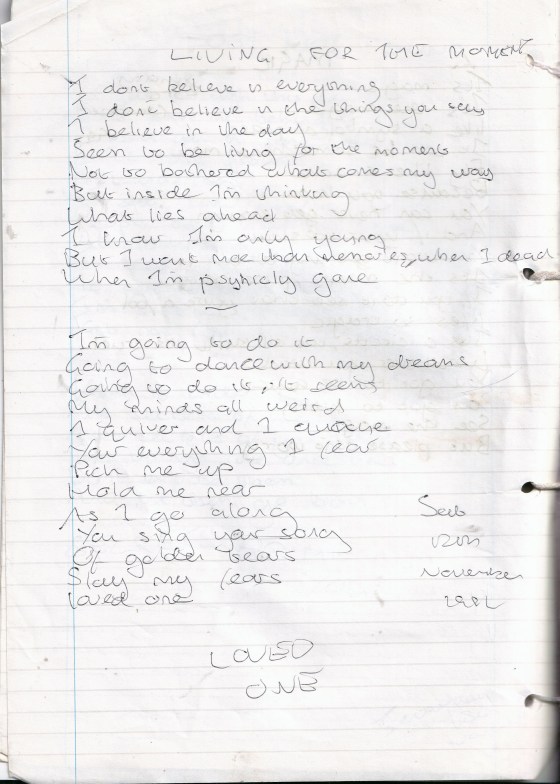 LIVING FOR THE MOMENT
I dont believe in everything
I dont believe in the things you see
I believe in the day
Seen to be living for the moment
Not to bothered what comes my way
But inside Im thinking
What lies ahead
I know I'm only young
But I want more than memories, when I dead
When Im psyhicly gone
Im going to do it
Going to dance with my dreams
Going to do it, it seems
My minds all weird
I quiver and I
Your everything I fear
Pick me up
Hold me near
As I go along
You sing your song
Of golden tears
Slay my fears
Loved one
Seb
November
LOVED
ONE